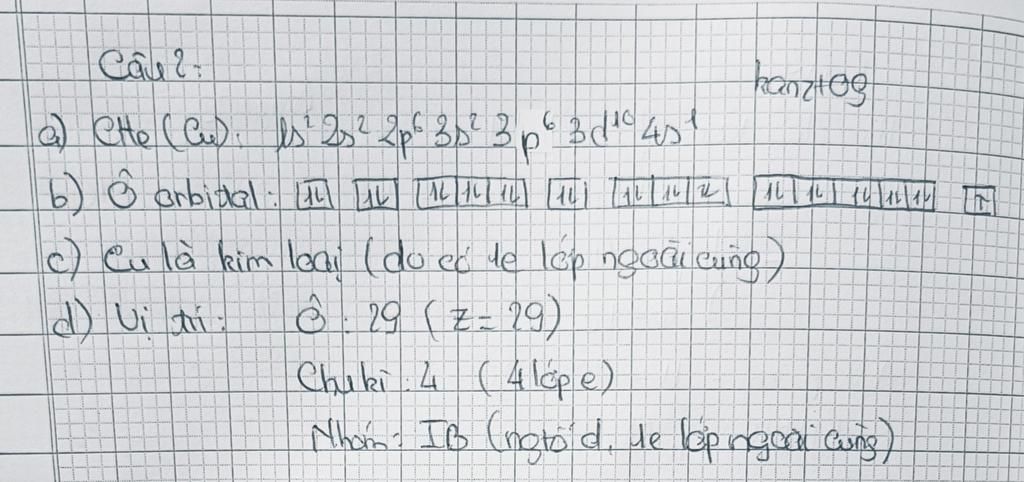 Câu 2:
hanzt09
a) CHe (Cu): 1s² 2s² 2p⁶ 3s² 3p⁶ 3d¹⁰ 4s¹
b) Ô orbital: ↑↓ ↑↓ ↑↓ ↑↓ ↑↓ ↑↓ ↑↓ ↑↓ ↑↓ ↑↓ ↑↓ ↑↓ ↑↓ ↑↓ ↑
c) Cu là kim loại (do có 1e lớp ngoài cùng)
d) Vị trí: Ô: 29 (Z = 29)
Chu kì: 4 (4 lớp e)
Nhóm: IB (ngtố d, 1e lớp ngoài cùng)